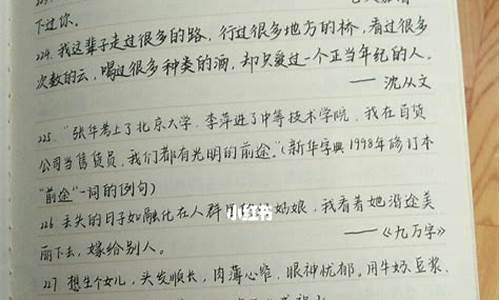 下过你.
224. 我这辈子走过很多的路, 行过很多地方的桥, 看过很多
次数的云, 喝过很多种类的酒, 却只爱过一个正当年纪的人。
—— 沈从文
225. "张华考上了北京大学, 李萍进了中等技术学院, 我在百货
公司当售货员, 我们都有光明的前途。"(新华字典1998年修订本
"前途"一词的例句)
226 丢失的日子如融化在人群里的姑娘, 我看着她沿途美
丽下去, 嫁给别人。
——《九万字》
小红书
227 想生个女儿, 头发顺长, 肉薄心细, 眼神忧郁。用牛奶、豆浆、